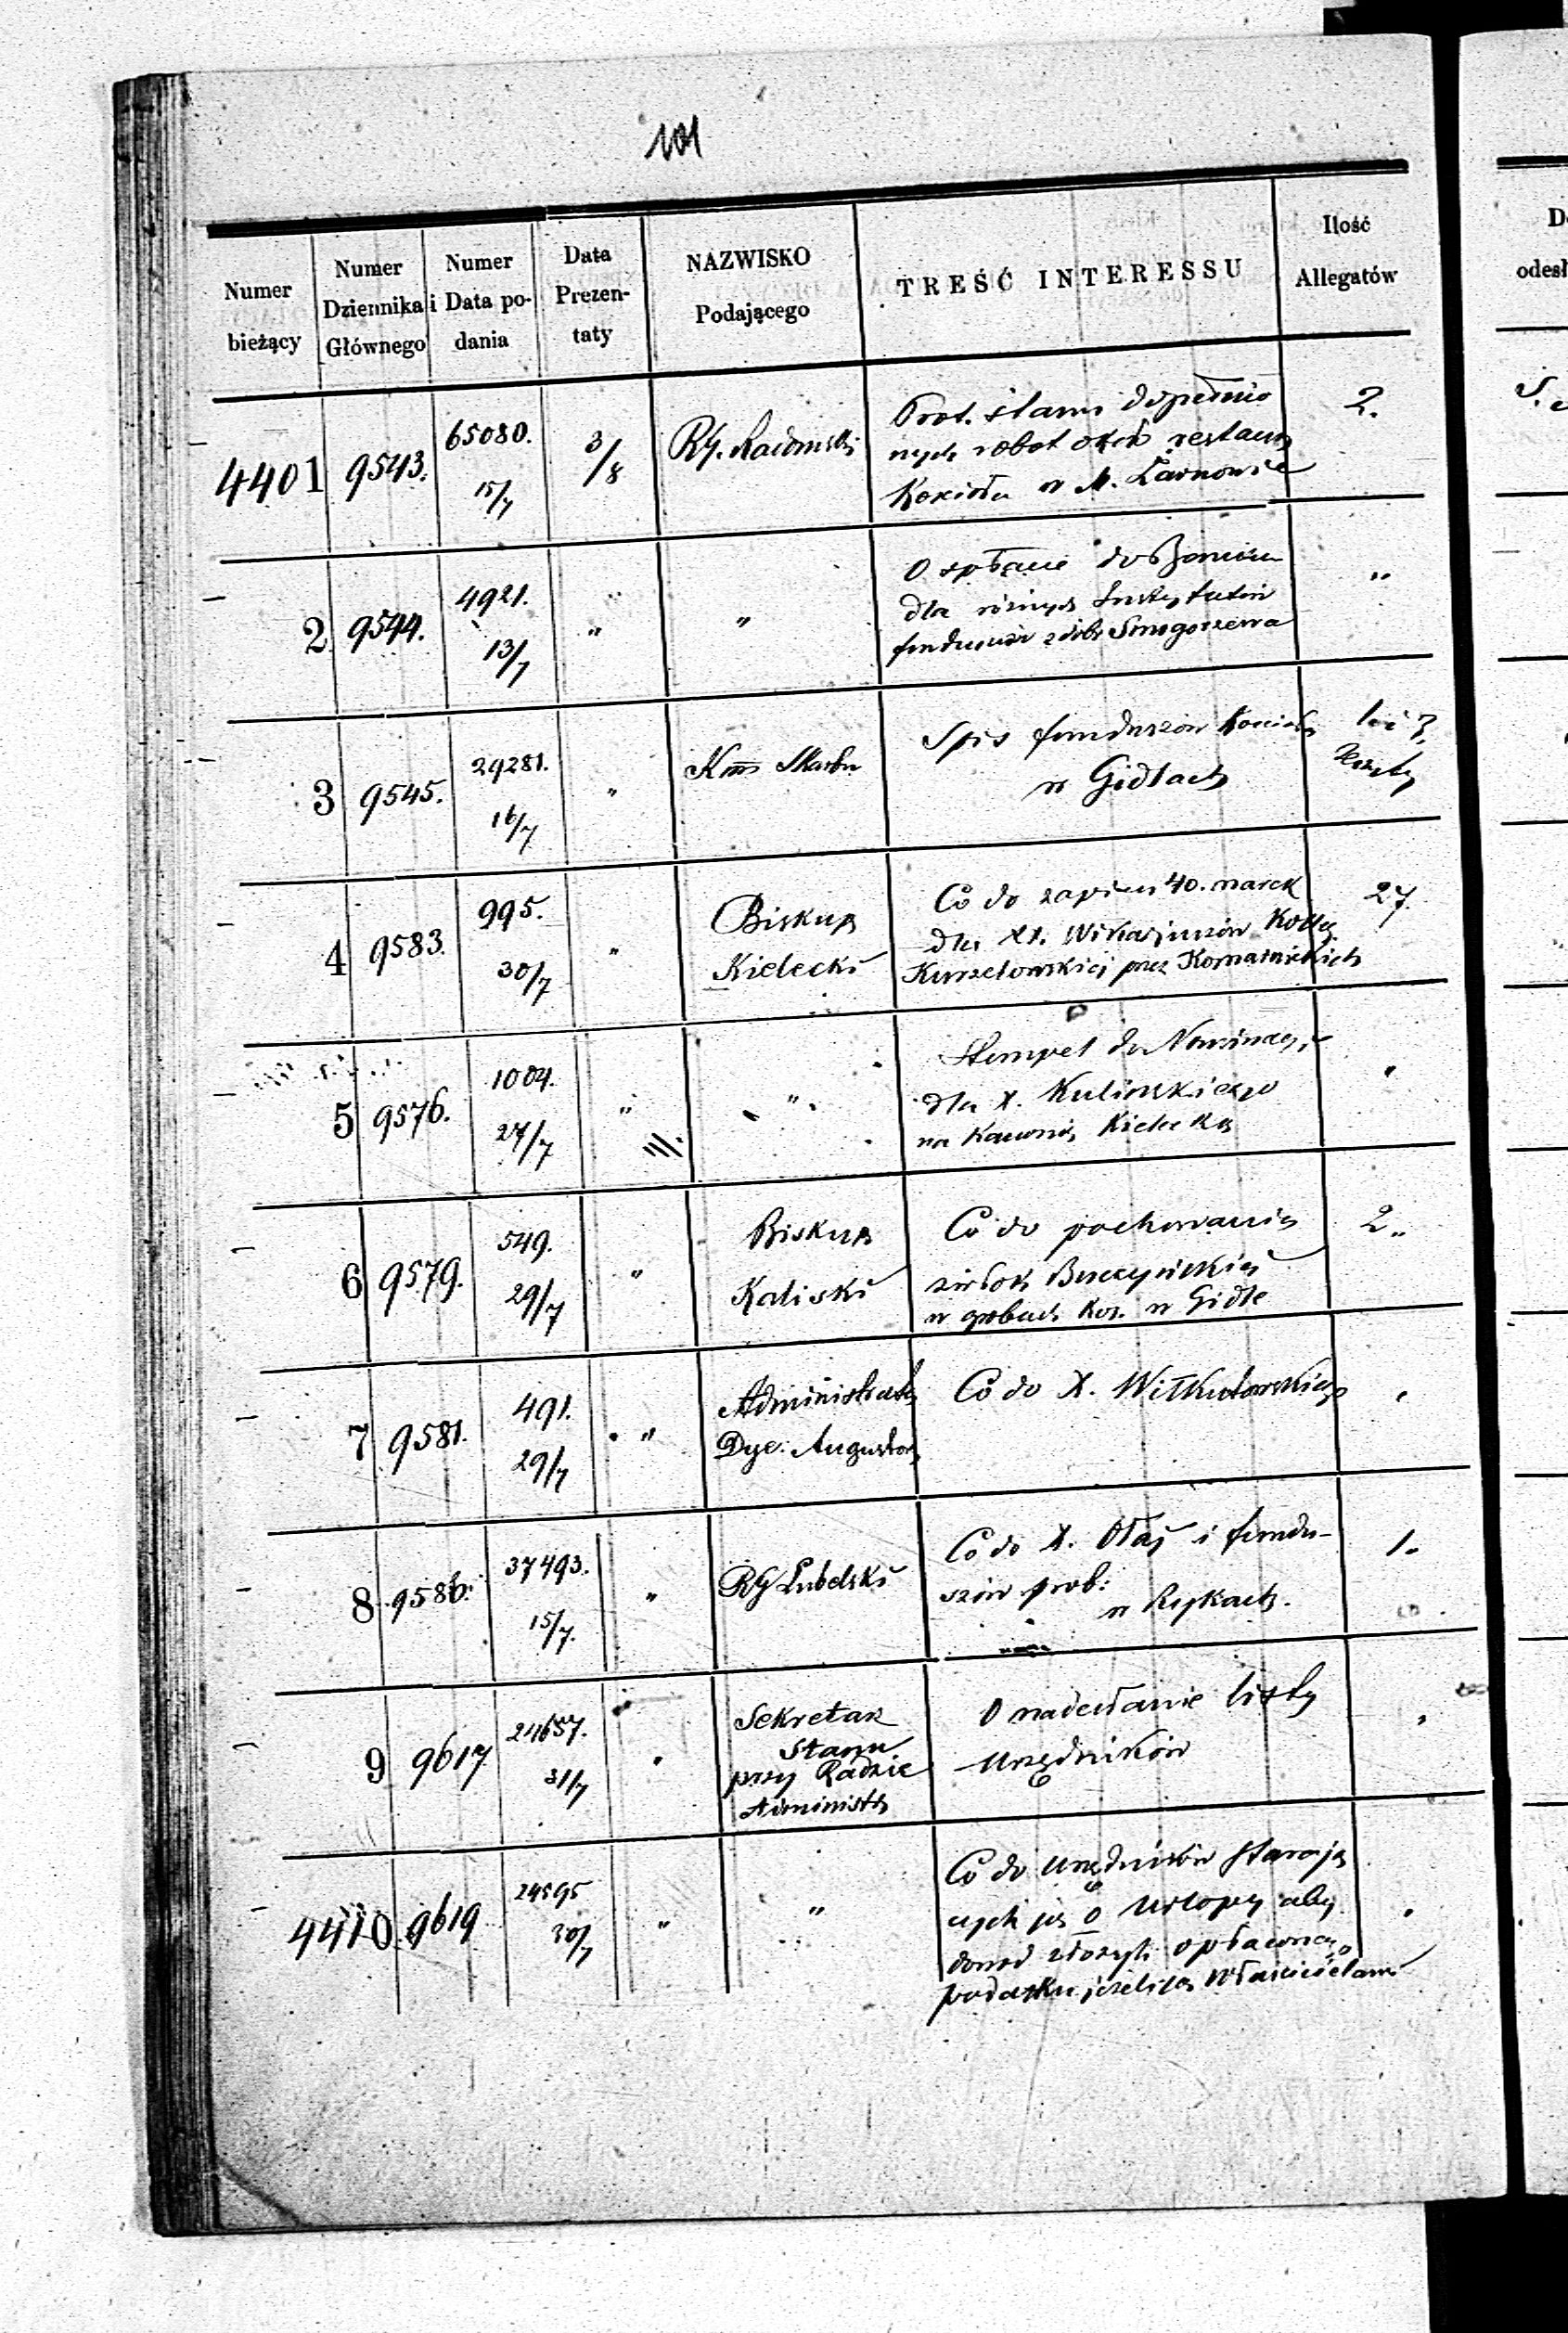 101
Numer bieżący
Numer Dziennika Głównego
Numer i Data podania
Data Prezen-taty
NAZWISKO Podającego
TREŚĆ INTERESSU
Ilość Allegatów
4401 9543. 65080. 15/7 3/8 RG. Radomski
Prot. stanu dopełnio
nych robot restaur
Kościoła w M. Żarnowie
2.
2 9544. 4921. 13/7 " "
O spłacie do Banku
dla różnych Instytutów
funduszów z dóbr Smogorzewa
"
3 9545. 29281. 16/7 " Kom Skarbu
Spis funduszów Kościoła
w Gidlach
1 i 3
Zeszyty
4 9583. 995. 30/7 "
Biskup
Kielecki
Co do zapisu 40. marek
dla XX. Wikariuszów Kolleg.
Kurzelowskiej przez Komarnickich
27.
5 9576. 1004. 27/7 " "
Stempel do Nominacji
dla X. Kulińskiego
na Kanonię Kielecką
"
6 9579. 549. 29/7 "
Biskup
Kaliski
Co do pochowania
zwłok
w grobach Koś. w Gidle
2"
7 9581. 491. 29/7 "
Administrator
Dyec. Augustow
Co do X. Witkutowskiego
"
8 9586. 37493. 15/7. " RG Lubelski
Co do X. Ołaj i fundu-
szów prob:
w Rykach.
1.
9 9617 24657. 31/7 "
Sekretarz
Stanu
przy Radzie
Administr
O nadesłanie listy
Urzędników
"
4410 9619 24595 30/7 " "
Co do Urzędników starają
cych się o Urlopy aby
dowod złożyli opłaconego
podatku jeżeli są Właścicielami
"
D
odesł